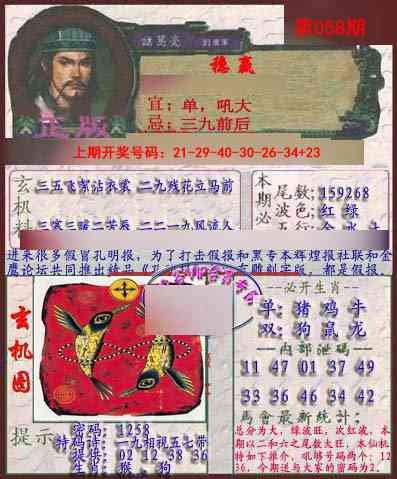 第058期
諸葛亮
稳赢
宜：单，吼大
忌：三九前后
正版
上期开奖号码：21-29-40-30-26-34+23
玄机料
三五飞家沾衣裳 二九残花立马前
本期必
尾数;159268
波色;红 绿
进来很多假冒孔明报，为了打击假报和黑专本辉煌报社联和金
鹰论坛共同推出精品《
雕刻字版，都是假报.
玄机图
--必开生肖--
单:猪鸡牛
双:狗鼠龙
--内部泄码--
11 47 01 37 49
33 36 46 34 42
馬會最新統計:
总分为大，绿波旺，次红波，本
期以二和六之尾数大狂，本仙机
特如下推介，吼够号码两个：12
36，今期送与大家的密码为2.
提示
密码:1258
特码诗:一九相视五七带
提供:02 12 38 36
生肖:猴.狗